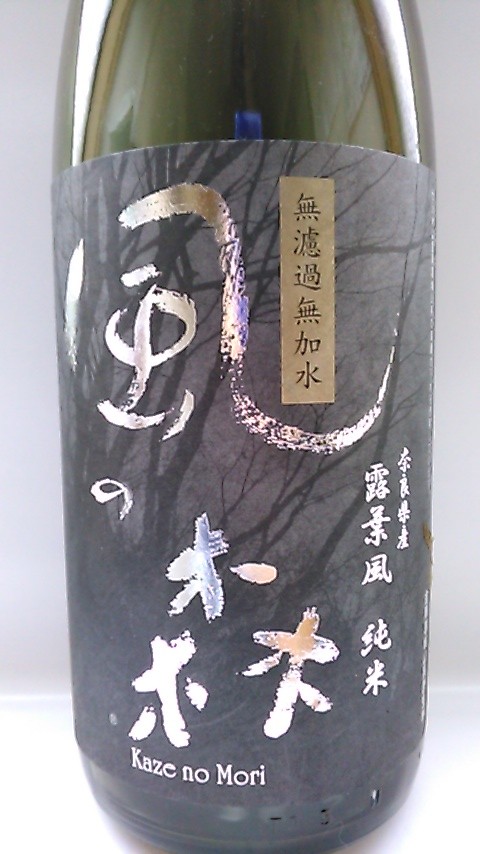 風の森
無濾過無加水
奈良県産
露葉風 純米
Kaze no Mori